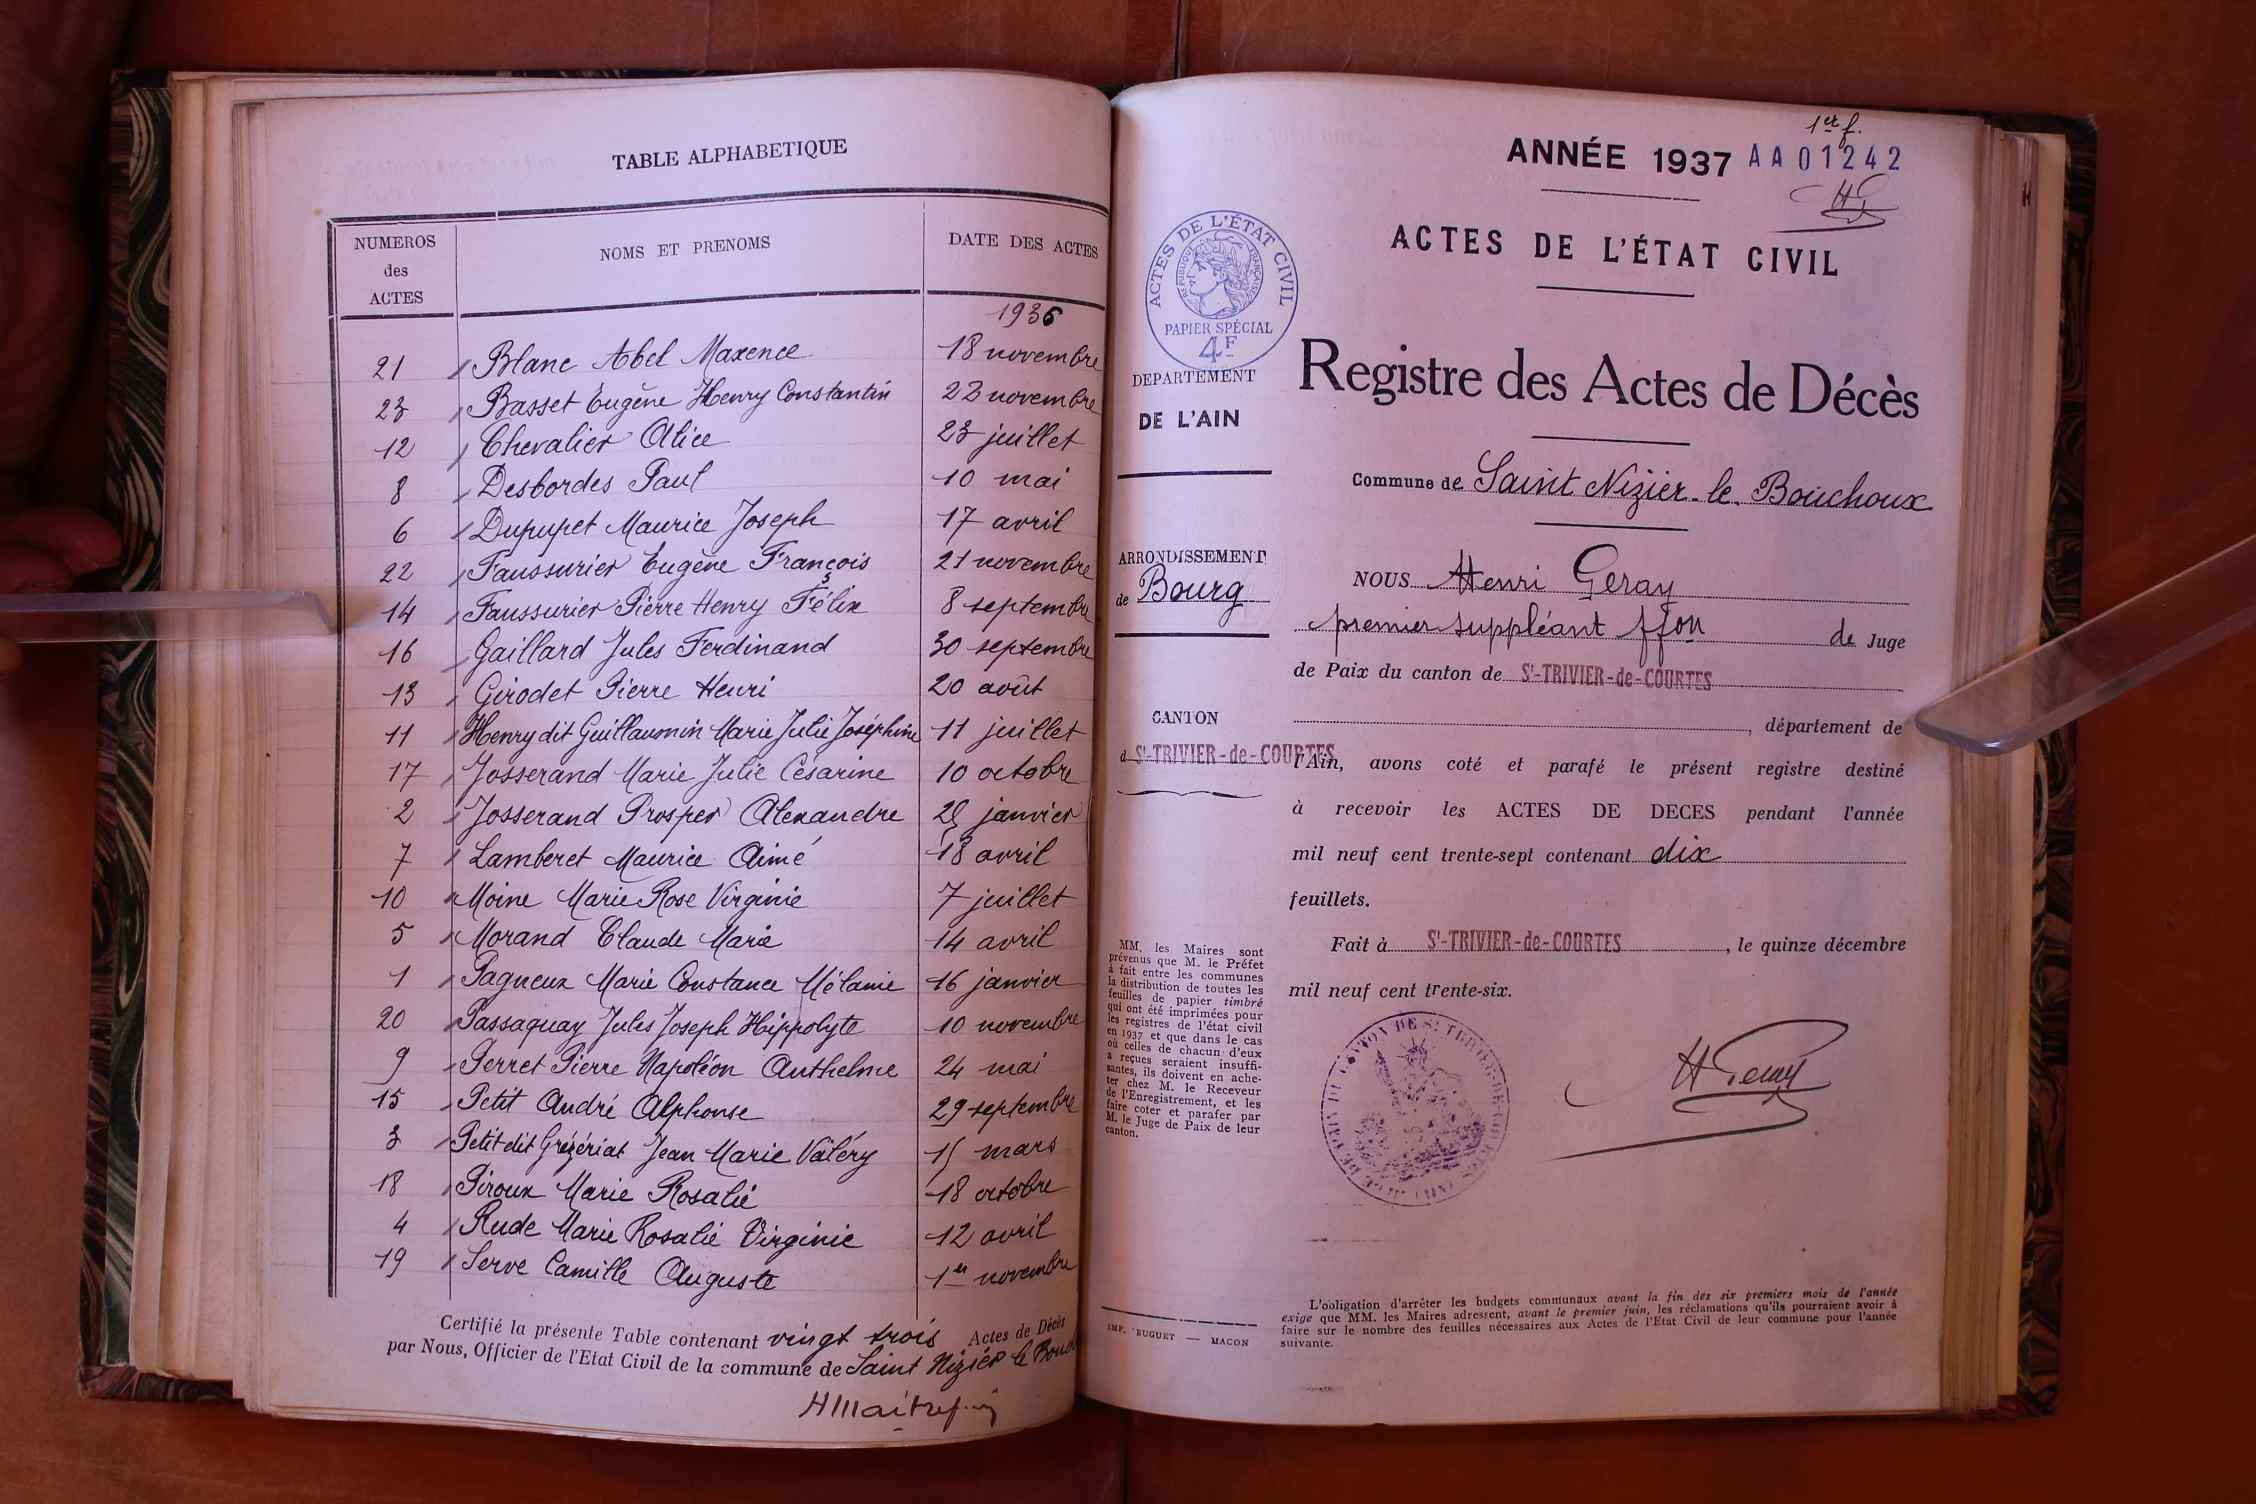 TABLE ALPHABETIQUE
NUMEROS
des
ACTES
NOMS ET PRENOMS
DATE DES ACTES
1936
21 Blanc Abel Maxence 18 novembre
23 Basset Eugène Henry Constantin 23 novembre
12 Chevalier Alice 23 juillet
8 Desbordes Paul 10 mai
6 Dupupet Maurice Joseph 17 avril
22 Faussurier Eugène François 21 novembre
14 Faussurier Pierre Henry Félix 8 septembre
16 Gaillard Jules Ferdinand 30 septembre
13 Girodet Pierre Henri 20 août
11 Henry dit Guillaumin Marie Julie Joséphine 11 juillet
17 Josserand Marie Julie Césarine 10 octobre
2 Josserand Prosper Alexandre 25 janvier
7 Lamberet Maurice Aimé 18 avril
10 Moine Marie Rose Virginie 7 juillet
5 Morand Claude Marie 14 avril
1 Pagneux Marie Constance Mélanie 16 janvier
20 Passaquay Jules Joseph Hippolyte 10 novembre
9 Perret Pierre Napoléon Anthelme 24 mai
15 Petit André Alphonse 29 septembre
3 Petit dit Grézériat Jean Marie Valéry 15 mars
18 Piroux Marie Rosalie 18 octobre
4 Rude Marie Rosalie Virginie 12 avril
19 Serve Camille Auguste 1er novembre
Certifié la présente Table contenant vingt trois Actes de Décès
par Nous, Officier de l'Etat Civil de la commune de Saint Nizier le Bouch
1er f.
ANNÉE 1937 AA01242
HG
ACTES DE L'ÉTAT CIVIL
ACTES DE L'ÉTAT CIVIL
RÉPUBLIQUE FRANÇAISE
PAPIER SPÉCIAL
4F
DEPARTEMENT
DE L'AIN
ARRONDISSEMENT
de Bourg
CANTON
d St-TRIVIER-de-COURTES
MM. les Maires sont
prévenus que M. le Préfet
a fait entre les communes
la distribution de toutes les
feuilles de papier timbré
qui ont été imprimées pour
les registres de l'état civil
en 1937 et que dans le cas
où celles de chacun d'eux
a reçues seraient insuffi-
santes, ils doivent en ache-
ter chez M. le Receveur
de l'Enregistrement, et les
faire coter et parafer par
M. le Juge de Paix de leur
canton.
IMP. BUGUET — MACON
Registre des Actes de Décès
Commune de Saint Nizier-le-Bouchoux
NOUS Henri Geray
premier suppléant ffon de Juge
de Paix du canton de St-TRIVIER-de-COURTES
, département de
l'Ain, avons coté et parafé le présent registre destiné
à recevoir les ACTES DE DECES pendant l'année
mil neuf cent trente-sept contenant dix
feuillets.
Fait à St-TRIVIER-de-COURTES, le quinze décembre
mil neuf cent trente-six.
H Geray
L'obligation d'arrêter les budgets communaux avant la fin des six premiers mois de l'année
exige que MM. les Maires adressent, avant le premier juin, les réclamations qu'ils pourraient avoir à
faire sur le nombre des feuilles nécessaires aux Actes de l'Etat Civil de leur commune pour l'année
suivante.